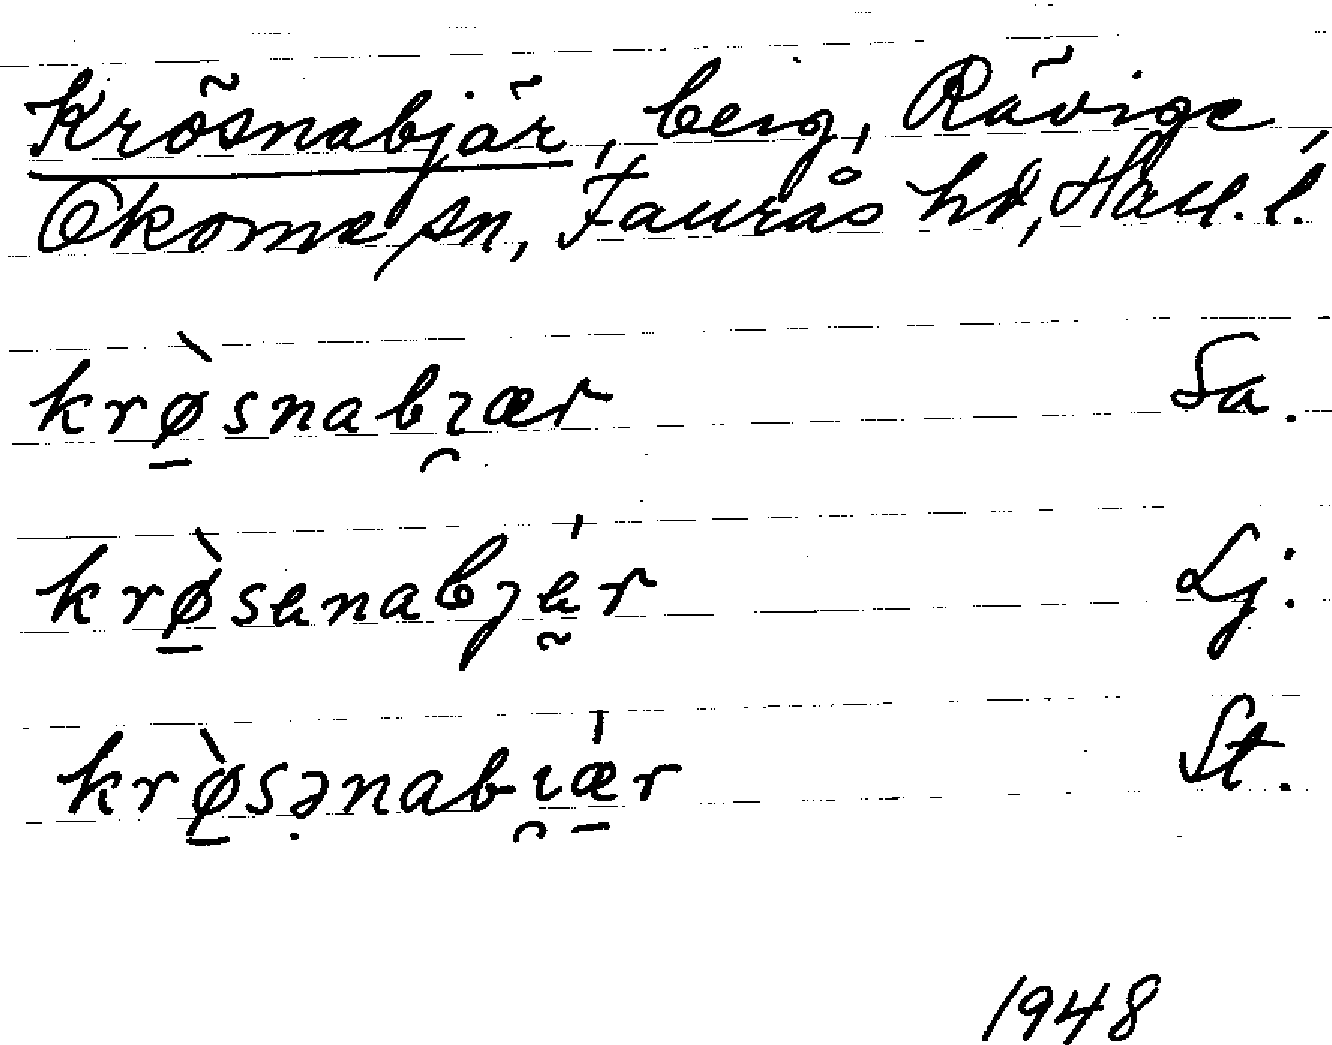 Krösnabjär, berg, Rävige,
Okome sn, Faurås hd, Hall. l.
krø̱̀snabı̯ær Sa.
krø̱̀sɐnabȷɐ̰́r Lj.
krø̱̀sə̣nabı̯ǽ̱r St.
1948